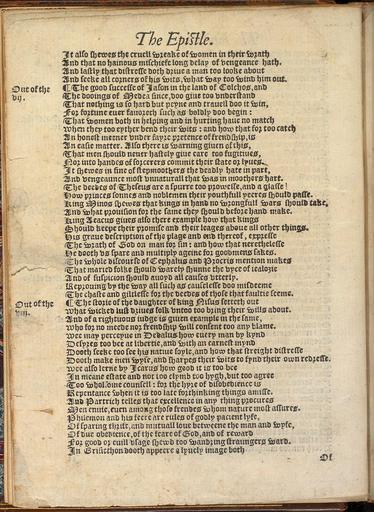 The Epistle.
It also shewes the cruell wreake of women in their wrath
And that no hainous mischiefe long delay of vengeance hath.
And lastly that distresse doth driue a man too looke about
And seeke all corners of his wits, what way too wind him out.
Out of the vij.
¶ The good successe of Jason in the land of Colchos, and
The dooings of Medea since, doo giue too vnderstand
That nothing is so hard but peyne and trauell doo it win,
For fortune euer fauoreth such as boldly doo begin:
That women both in helping and in hurting haue no match
When they too eyther bend their wits: and how that for too catch
An honest meener vnder fayre pretence of frendship, is
An easie matter. Also there is warning giuen of this,
That men should neuer hastely giue eare too fugitiues,
Nor into handes of sorcerers commit their state or lyues.
It shewes in fine of stepmoothers the deadly hate in part,
And vengeaunce most vnnaturall that was in moothers hart.
The deedes of Theseus are a spurre too prowesse, and a glasse
How princes sonnes and noblemen their youthfull yeeres should passe.
King Minos shewes that kings in hand no wrongfull wars should take,
And what prouision for the same they should before hand make.
King Aeacus giues also there example how that kings
Should keepe their promise and their leages aboue all other things.
His graue description of the plage and end thereof, expresse
The wrath of God on man for sin: and how that nerethelesse
He dooth vs spare and multiply ageine for goodmens sakes.
The whole discourse of Cephalus and Procris mention makes
That maried folke should warely shunne the vyce of ielozie
And of suspicion should auoyd all causes vtterly.
Reprouing by the way all such as causelesse doo misdeeme
The chaste and giltlesse for the deedes of those that faultie seeme.
Out of the viij.
¶ The storie of the daughter of king Nisus setteth out
What wicked lust driues folk vntoo too bring their willes about.
And of a rightuous iudge is giuen example in the same,
Who for no meede nor frendship will consent too any blame.
Wee may perceyue in Dedalus how euery man by kynd
Desyres too bee at libertie, and with an earnest mynd
Dooth seeke too see his natiue soyle, and how that streight distresse
Dooth make men wyse, and sharpes their wits to fynd their own redresse.
Wee also lerne by Icarus how good it is too bee
In meane estate and not too clymb too hygh, but too agree
Too wholsome counsell: for the hyre of disobedience is
Repentance when it is too late forthinking things amisse.
And Partrich telles that excellence in any thing procures
Men enuie, euen among those frendes whom nature most assures.
Philemon and his feere are rules of godly pacient lyfe,
Of sparing thrift, and mutuall loue betweene the man and wyfe,
Of due obedience, of the feare of God, and of reward
For good or euill vsage shewd too wandring straungers ward.
In Erisicthon dooth appeere a lyuely image both
Of